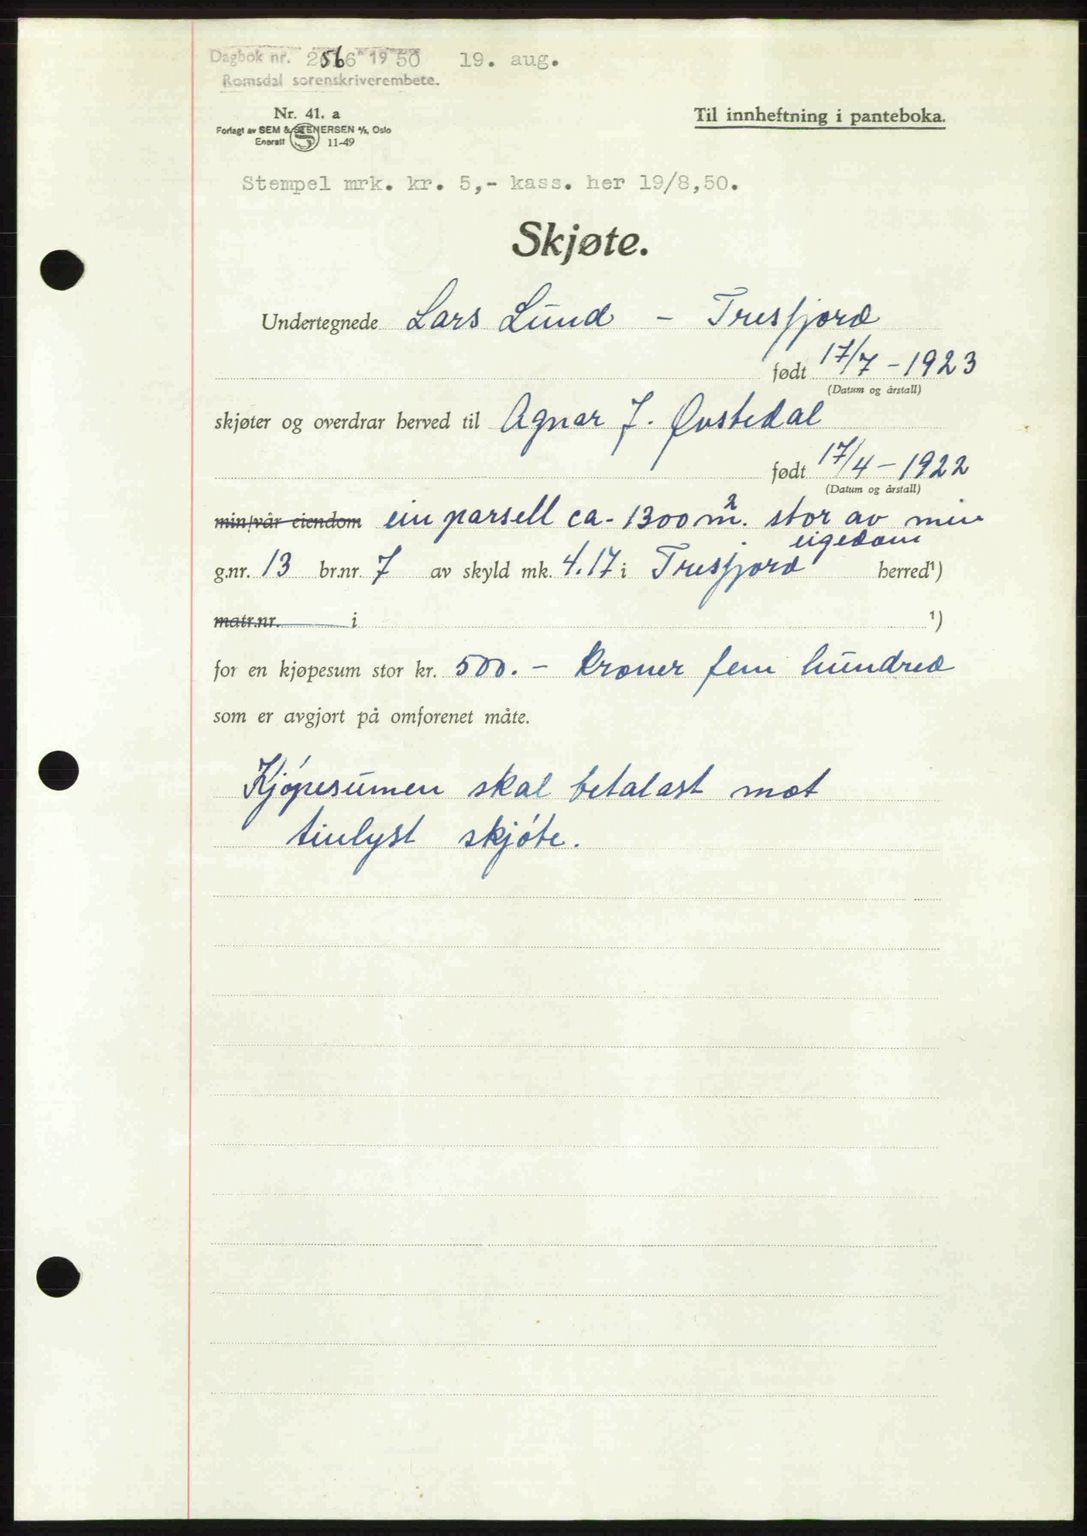 Dagbok nr. 2566 1950 19. aug.
Romsdal sorenskriverembete.
Nr. 41. a
Forlagt av SEM & STENERSEN A/S, Oslo
Enerett 11-49
Til innheftning i panteboka.
Stempel mrk. kr. 5,- kass. her 19/8,50.
Skjøte.
Undertegnede Lars Lund - Tresfjord
født 17/7 - 1923
(Datum og årstall)
skjøter og overdrar herved til Agnar J. Øvstedal
født 17/4 - 1922
(Datum og årstall)
min/vår eiendom ein parsell ca. 1300 m². stor av min
eigedom
g.nr. 13 br.nr. 7 av skyld mk. 4.17 i Tresfjord herred¹)
matr.nr. i ¹)
for en kjøpesum stor kr. 500.- Kroner fem hundred
som er avgjort på omforenet måte.
Kjøpesumen skal betalast mot
tinlyst skjøte.